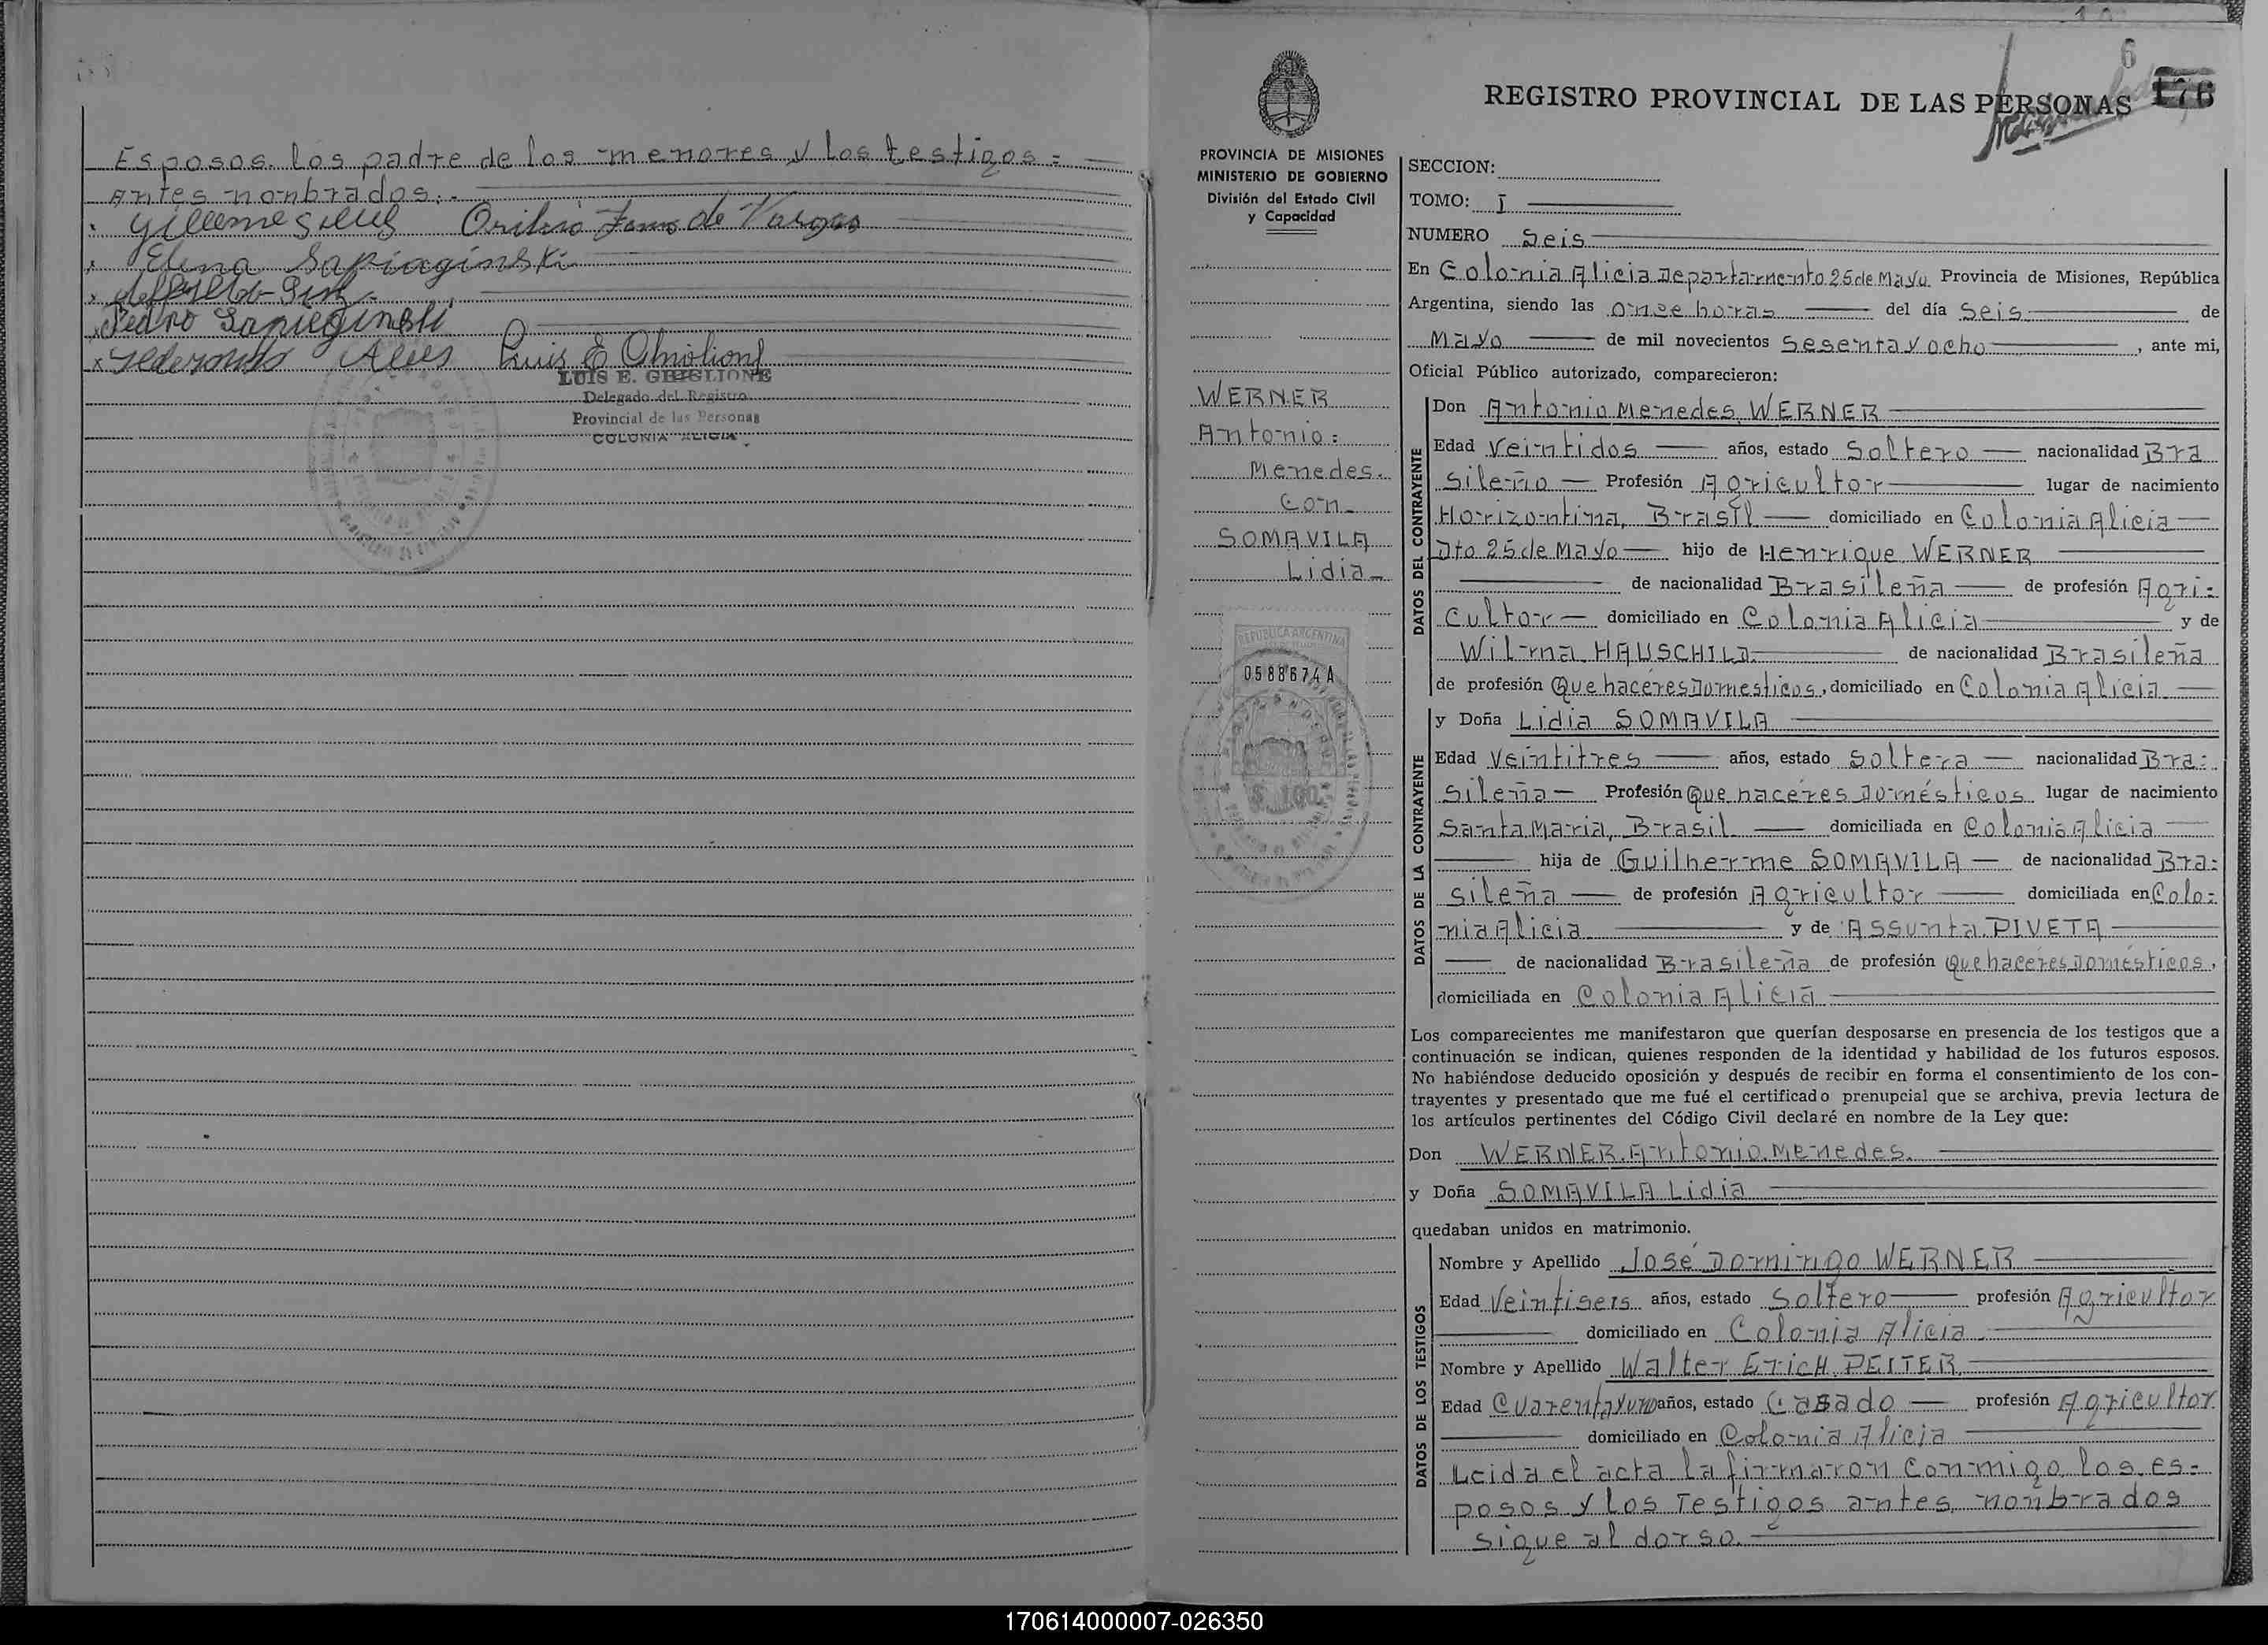 Esposos los padre de los menores y los testigos =
Antes nonbrados.-
Elena Sapiaginski
Pedro
Alves Luis E. Ghiglione
LUIS E. GHIGLIONE
Delegado del Registro
Provincial de las Personas
COLONIA ALICIA
6
REGISTRO PROVINCIAL DE LAS PERSONAS 176
PROVINCIA DE MISIONES
MINISTERIO DE GOBIERNO
División del Estado Civil
y Capacidad
WERNER
Antonio =
Menedes.
Con-
SOMAVILA
Lidia-
REPUBLICA ARGENTINA
0588674A
$ 100
SECCION:
TOMO: I
NUMERO Seis
En Colonia Alicia Departamento 25 de Mayo Provincia de Misiones, República
Argentina, siendo las once horas del día Seis de
Mayo de mil novecientos Sesenta y ocho, ante mi,
Oficial Público autorizado, comparecieron:
DATOS DEL CONTRAYENTE
Don Antonio Menedes WERNER
Edad Veintidos años, estado Soltero nacionalidad Bra
sileño Profesión Agricultor lugar de nacimiento
Horizontina, Brasil domiciliado en Colonia Alicia
Dto 25 de Mayo hijo de Henrique WERNER
de nacionalidad Brasileña de profesión Agri=
cultor domiciliado en Colonia Alicia y de
Wilma HAUSCHILD de nacionalidad Brasileña
de profesión Quehaceres Domesticos, domiciliado en Colonia Alicia
DATOS DE LA CONTRAYENTE
y Doña Lidia SOMAVILA
Edad Veintitres años, estado Soltera nacionalidad Bra=
sileña Profesión Que haceres Domésticos lugar de nacimiento
Santa Maria, Brasil domiciliada en Colonia Alicia
hija de Guilherme SOMAVILA de nacionalidad Bra=
sileña de profesión Agricultor domiciliada en Colo=
nia Alicia y de Assunta PIVETA
de nacionalidad Brasileña de profesión Quehaceres Domésticos,
domiciliada en Colonia Alicia
Los comparecientes me manifestaron que querían desposarse en presencia de los testigos que a
continuación se indican, quienes responden de la identidad y habilidad de los futuros esposos.
No habiéndose deducido oposición y después de recibir en forma el consentimiento de los con-
trayentes y presentado que me fué el certificado prenupcial que se archiva, previa lectura de
los artículos pertinentes del Código Civil declaré en nombre de la Ley que:
Don WERNER. Antonio. Menedes.
y Doña SOMAVILA Lidia
quedaban unidos en matrimonio.
DATOS DE LOS TESTIGOS
Nombre y Apellido José Domingo WERNER
Edad Veintiseis años, estado Soltero profesión Agricultor
domiciliado en Colonia Alicia
Nombre y Apellido Walter EricH PEITER
Edad Cuarenta y uno años, estado Casado profesión Agricultor
domiciliado en Colonia Alicia
Leida el acta la firmaron conmigo los es=
posos y los Testigos antes nonbrados
sigue al dorso.
170614000007-026350